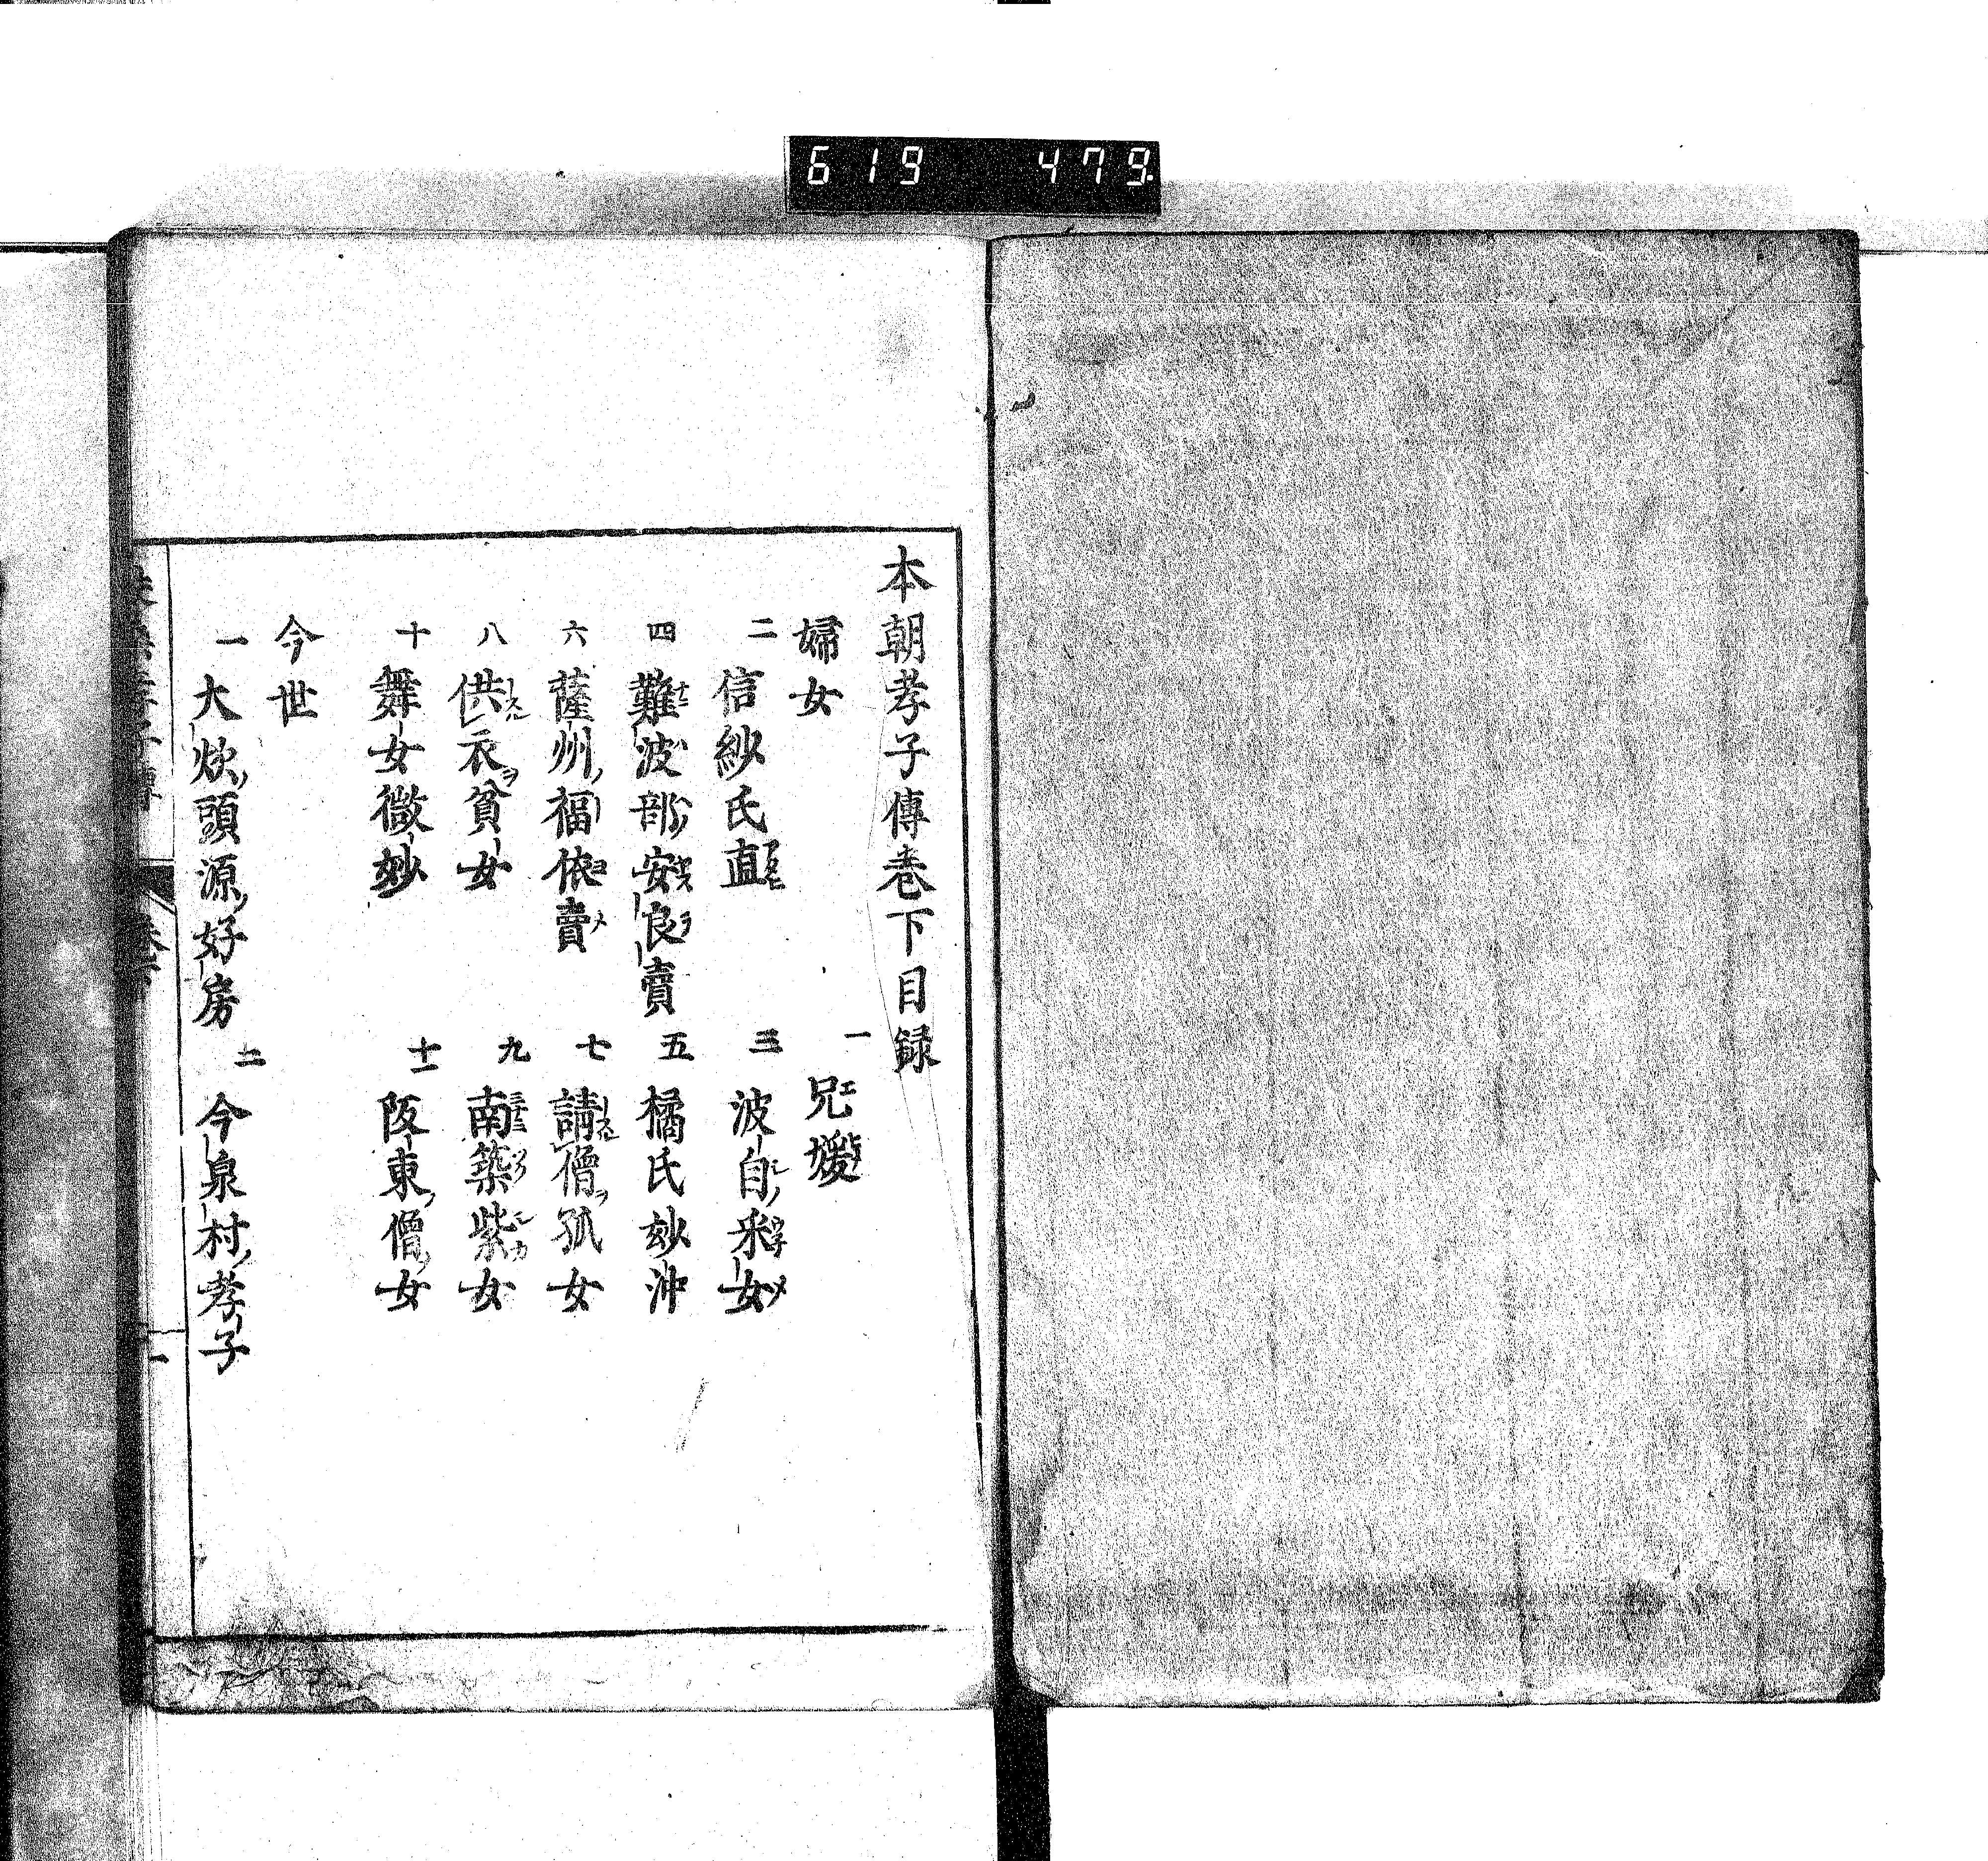 619 479
本朝孝子傳巻下目録
婦女
一 兄媛
二 信紗氏直
三 波自采女
四 難波部安良賣
五 橘氏妙沖
六 薩州福依賣
七 請僧孤女
八 供衣貧女
九 南築紫女
十 舞女微妙
十一 阪東僧女
今世
一 大炊頭源好房
二 今泉村孝子